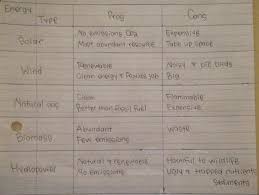 Energy
Type
Pros
Cons
Solar
No emissions CO2
Most abundant resource
Expensive
Take up space
Wind
Renewable
Clean energy & Provides job
Noisy &
birds
Big
Natural gas
Clean
Better than fossil fuel
Flammable
Expensive
Biomass
Abundant
Few emissions
Waste
Hydropower
Natural & renewable
No emissions
Harmful to wildlife
Ugly & trapped nutrients
Sediments